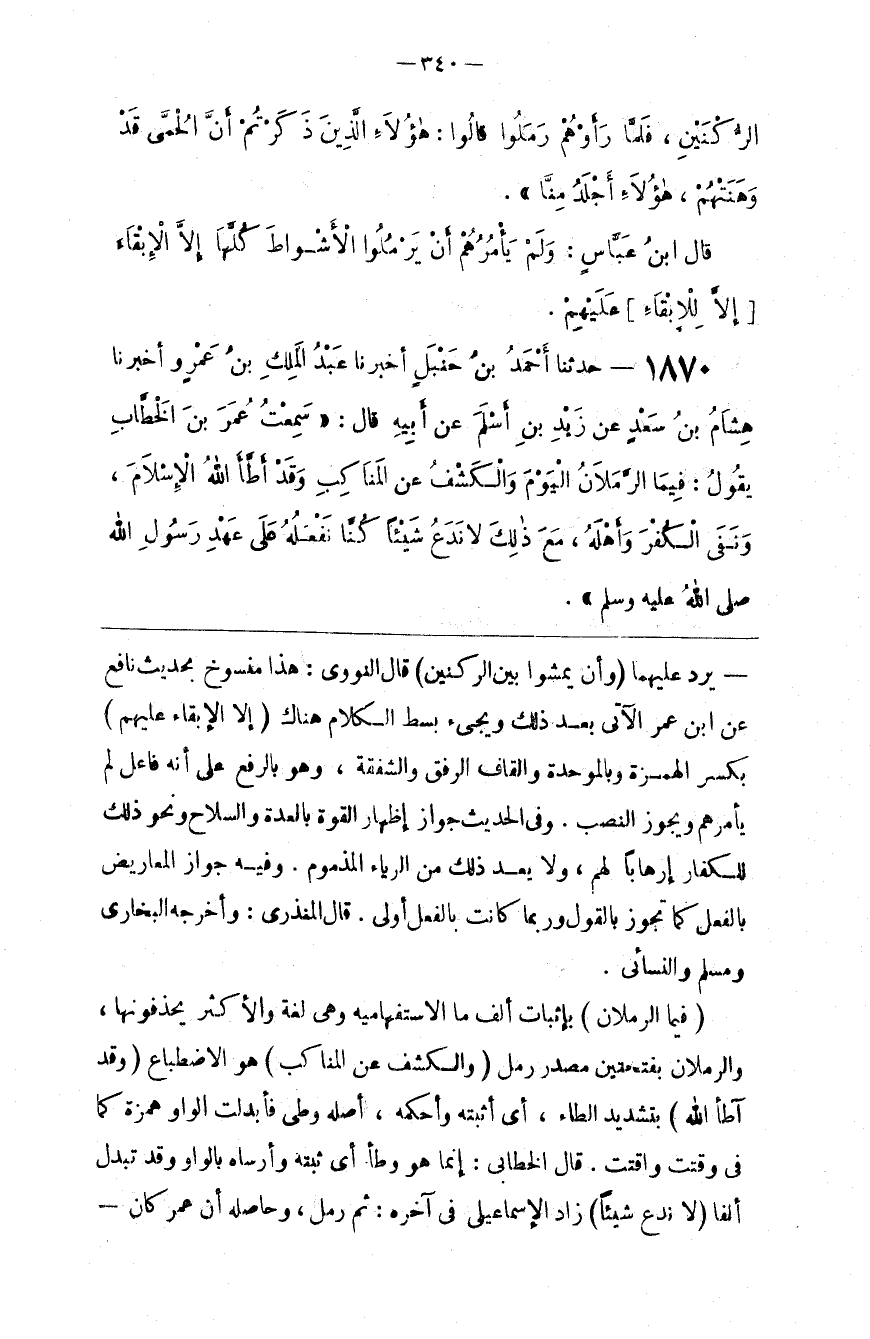 — ٣٤٠ —
الرُّكْنَيْنِ ، فَلَمَّا رَأَوْهُمْ رَمَلُوا قالُوا : هٰؤُلَاءِ الَّذِينَ ذَكَرْتُمْ أَنَّ الْحُمَّى قَدْ
وَهَنَتْهُمْ ، هٰؤُلَاءِ أَجْلَدُ مِنَّا » .
قال ابنُ عَبَّاسٍ : وَلَمْ يَأْمُرْهُمْ أَنْ يَرْمُلُوا الْأَشْواطَ كُلَّهَا إلاَّ الْإِبْقَاءَ
[ إلاَّ لِلْإِبْقَاءِ ] عَلَيْهِمْ .
١٨٧٠ — حدثنا أَحْمَدُ بنُ حَنْبَلٍ أخبرنا عَبْدُ الْمَلِكِ بنُ عَمْرٍو أخبرنا
هِشَامُ بنُ سَعْدٍ عن زَيْدِ بنِ أَسْلَمَ عن أَبِيهِ قال : « سَمِعْتُ عُمَرَ بنَ الْخَطَّابِ
يقُولُ : فِيمَا الرَّمَلَانُ الْيَوْمَ وَالْكَشْفُ عن المَنَاكِبِ وَقَدْ أَطَّأَ اللهُ الْإِسْلَامَ ،
وَنَفَى الْكُفْرَ وَأَهْلَهُ ، مَعَ ذٰلِكَ لا نَدَعُ شَيْئاً كُنَّا نَفْعَلُهُ عَلَى عَهْدِ رَسُولِ الله
صلى اللهُ عليه وسلم » .
— يرد عليهما (وأن يمشوا بين الركنين) قال النووى : هذا منسوخ بحديث نافع
عن ابن عمر الآتى بعد ذلك ويجىء بسط الكلام هناك ( إلا الإبقاء عليهم )
بكسر الهمزة وبالموحدة والقاف الرفق والشفقة ، وهو بالرفع على أنه فاعل لم
يأمرهم ويجوز النصب . وفى الحديث جواز إظهار القوة بالعدة والسلاح ونحو ذلك
للكفار إرهاباً لهم ، ولا يعد ذلك من الرياء المذموم . وفيه جواز المعاريض
بالفعل كما تجوز بالقول وربما كانت بالفعل أولى . قال المنذرى : وأخرجه البخارى
ومسلم والنسائى .
( فيما الرملان ) بإثبات ألف ما الاستفهاميه وهى لغة والأكثر يحذفونها ،
والرملان بفتحتين مصدر رمل ( والكشف عن المناكب ) هو الاضطباع ( وقد
آطأ الله ) بتشديد الطاء ، أى أثبته وأحكمه ، أصله وطى فأبدلت الواو همزة كما
فى وقتت واقتت . قال الخطابى : إنما هو وطأ أى ثبته وأرساه بالواو وقد تبدل
ألفا (لا ندع شيئاً) زاد الإسماعيلى فى آخره : ثم رمل ، وحاصله أن عمر كان —